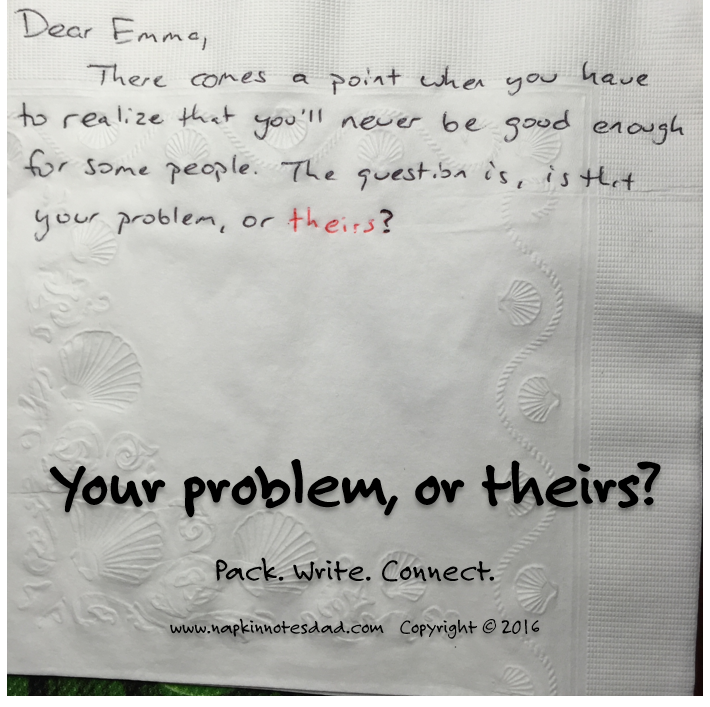 Dear Emma,
There comes a point when you have
to realize that you'll never be good enough
for some people. The question is, is that
your problem, or theirs?
Your problem, or theirs?
Pack. Write. Connect.
www.napkinnotesdad.com Copyright © 2016